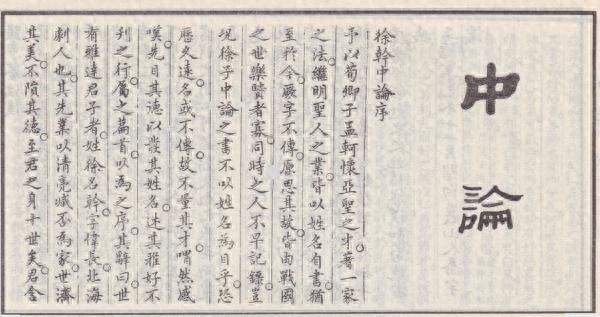 中論
徐幹中論序
予以荀卿子孟軻懷亞聖之才著一家
之法。繼明聖人之業皆以姓名自書猶
至於今厥字不傳。原思其故。皆由戰國
之世樂賢者寡。同時之人不早記錄。豈
況徐子中論之書不以姓名為目乎。恐
歷久遠。名或不傳。故不量其才。喟然感
嘆。先目其德。以發其姓名。述其雅好不
刊之行。屬之篇首。以為之序。其辭曰。世
有雅達君子者。姓徐名幹字偉長。北海
劇人也。其先業以清亮臧否為家。世濟
其美。不隕其德。至君之身十世矣。君含